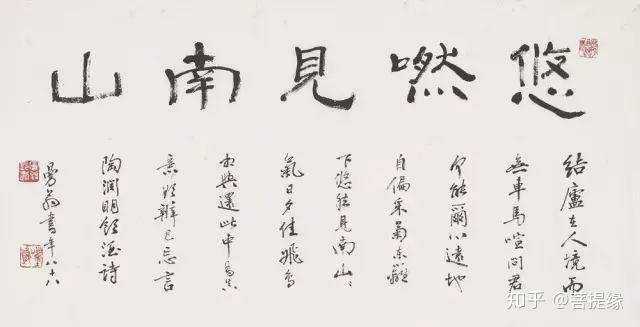 悠然見南山
結廬在人境而
無車馬喧問君
何能爾心遠地
自偏采菊東籬
下悠然見南山〻
氣日夕佳飛鳥
相與還此中有真
意欲辯已忘言
陶淵明飲酒詩
曼翁書年八十八
知乎 @菩提缘